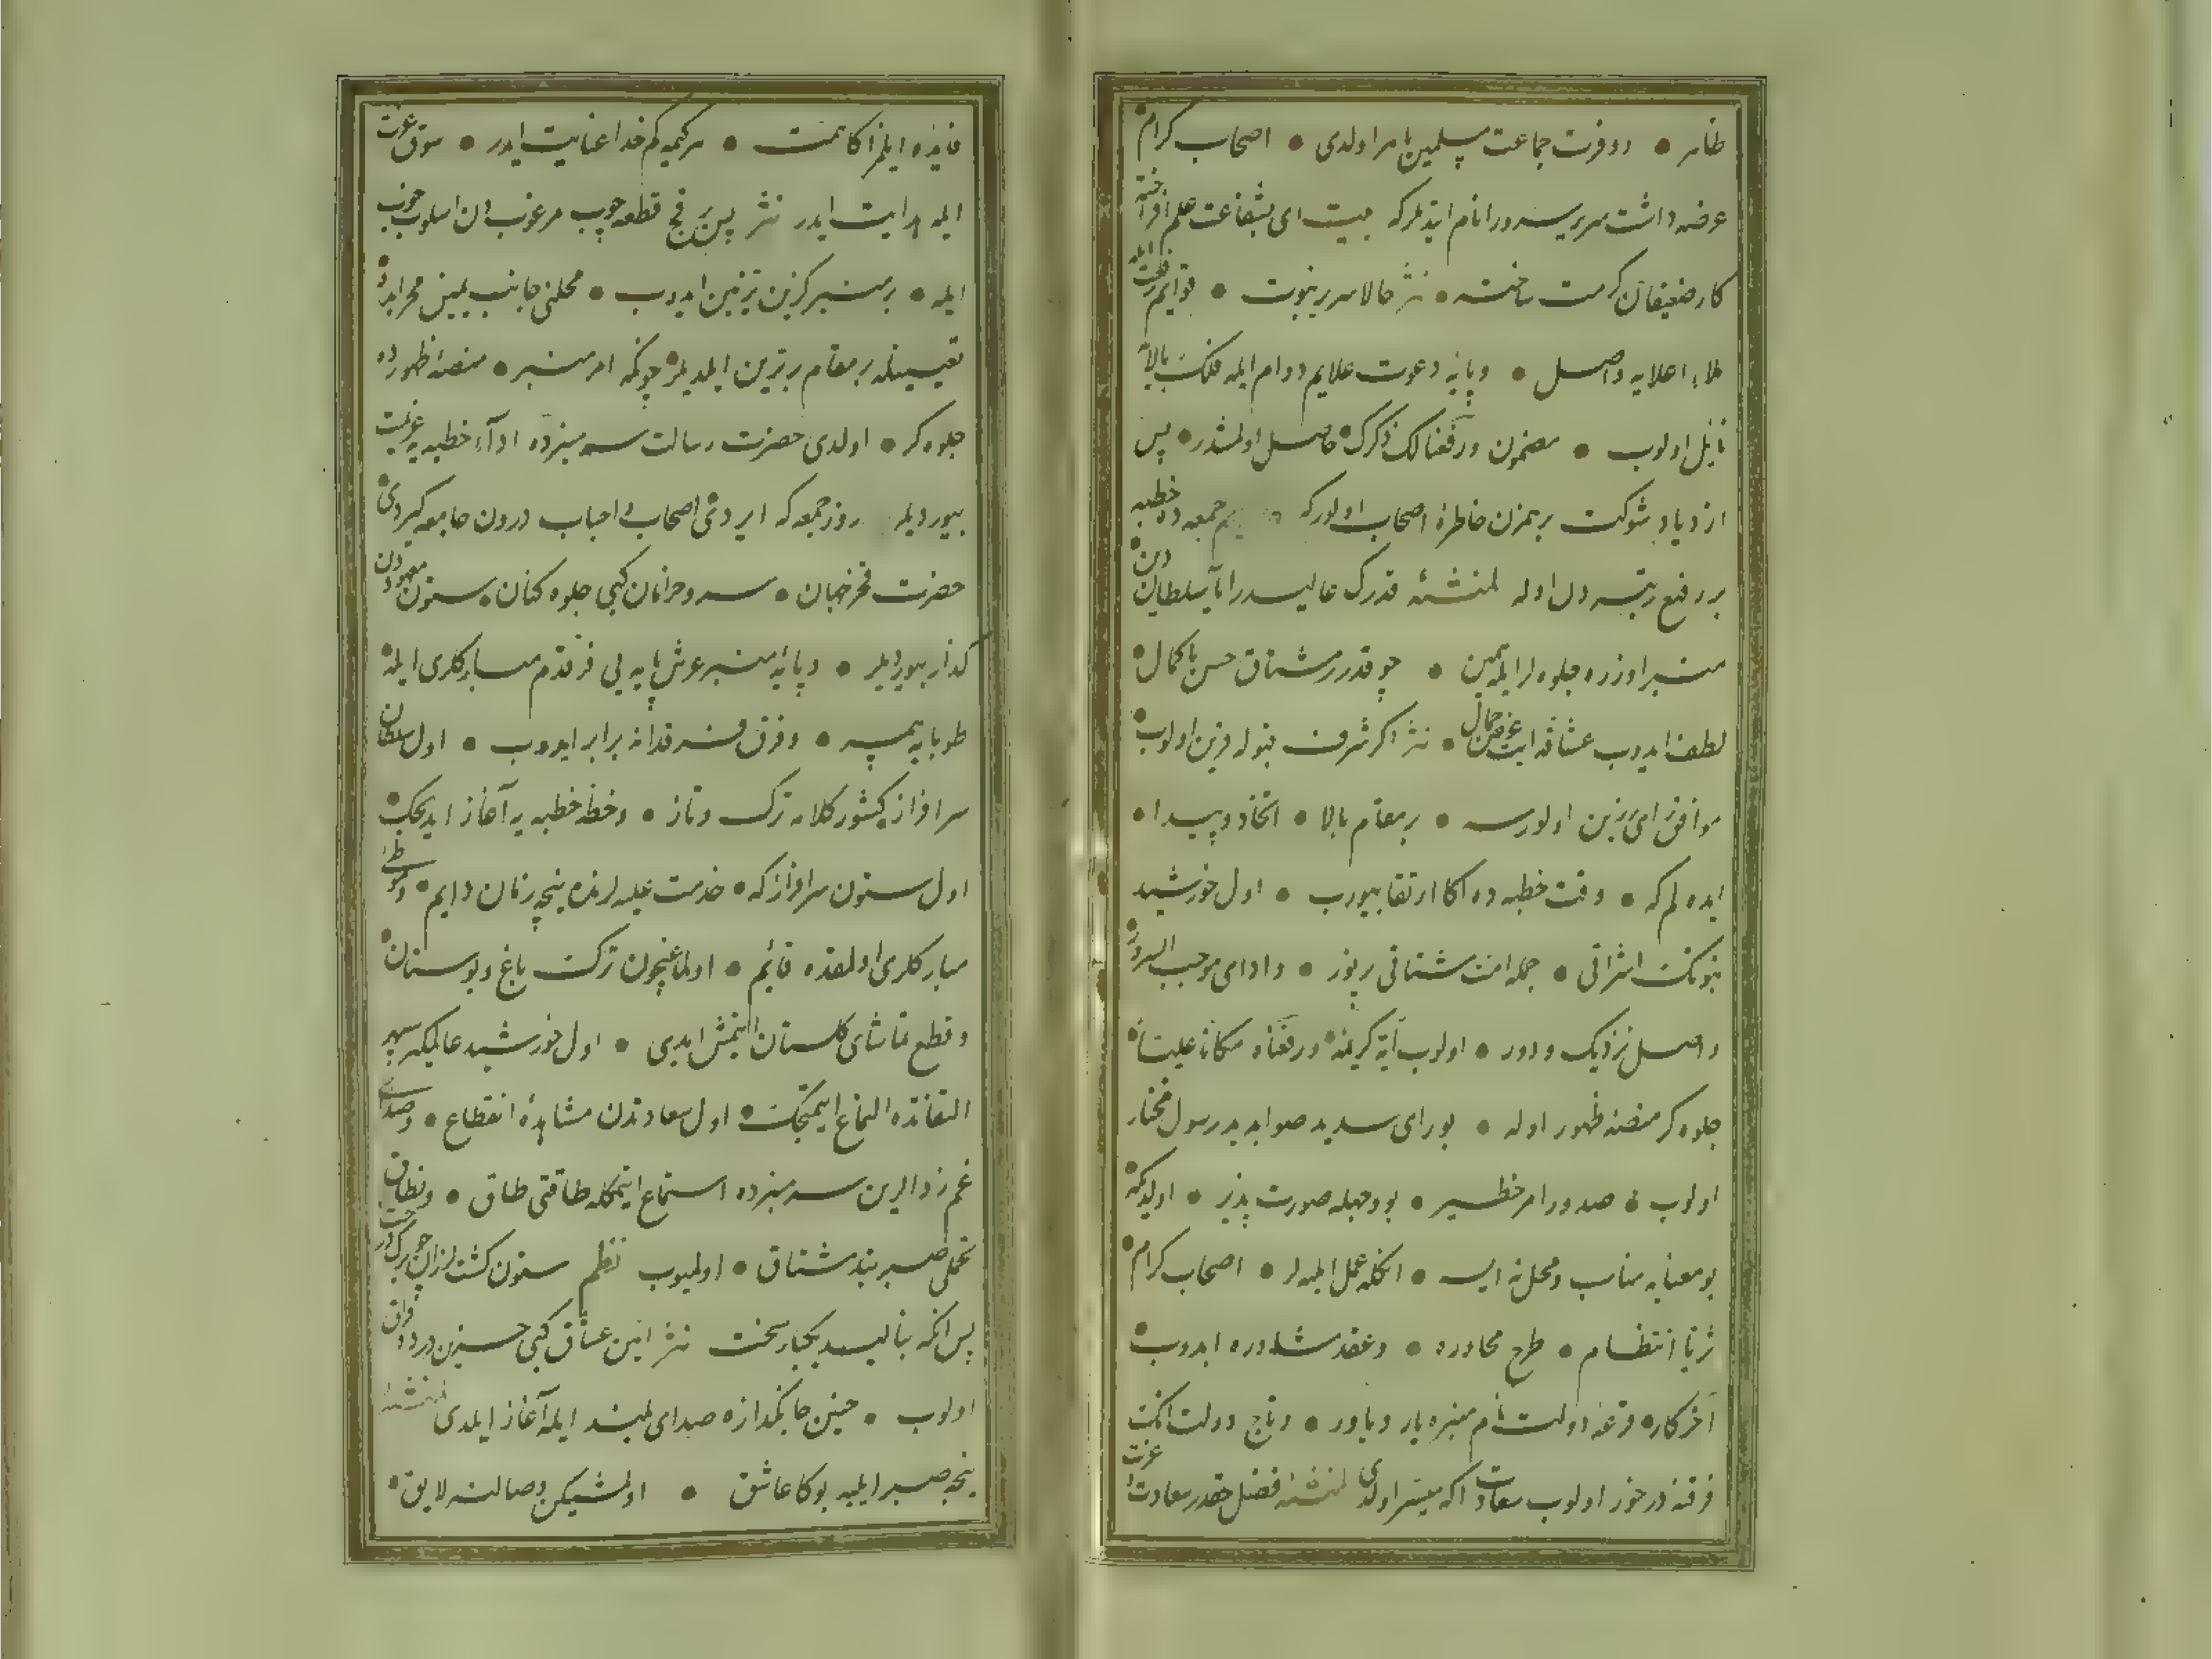 ظاهر • ووفرت جماعت مسلمین باهر اولدی • اصحاب کرام •
عرضه داشت سریر سرور انام ایتدیلر که بیت ای بشفاعت علم افراخته
کار ضعیفان کرمت ساخته • نثر حالا سریر نبوت • قوایم رفعت ایله
ملاء اعلایه واصل • وپایهٔ دعوت علایم دوام ایله فلک بالایه
نایل اولوب • مضمون ورفعنا لک ذکرک • حاصل اولمشدر • پس
ازدیاد شوکت برهمزن خاطرهٔ اصحاب اولور که جمعه ده خطبه
بر رفیع رتبه دن اوله لمنشئه قدرک عالیدر ایا سلطان دین •
منبر اوزره جلوه لر ایله همین • چو قدر مشتاق حسن با کمال •
لطف ایدوب عشاقه ایت عرض جمال • نثر اکر شرف قبوله قرین اولوب •
موافق رای رزین اولورسه • بر مقام بالا • اتخاذ وپیدا •
ایده لم که • وقت خطبه ده اکا ارتقا بیوروب • اول خورشید
نبوتک اشراقی • جمله امت مشتاقی پرنور • وادای موجب السروری •
واصل نزدیک ودور • اولوب آیهٔ کریمهٔ • ورفعناه مکانا علیا •
جلوه کر منصهٔ ظهور اوله • بو رای سدید صوابدید رسول مختار
اولوب • صدور امر خطیر • بو وجهله صورت پذیر • اولدیکه •
بو معنایه مناسب ومحل نه ایسه • انکله عمل ایلیه لر • اصحاب کرام •
ثریا انتظام • طرح محاوره • وعقد مشاوره ایدوب •
آخر کار • قرعهٔ دولت بنام منبره یار ویاور • وتاج دولت انک
فرقنه درخور اولوب سعادت اکه میسر اولدی لمنشئه فضل حقدر سعادت عزت
فایده ایلمز اکا همت • هر کیمه کم خدا عنایت ایدر • سوق عزت
ایله هدایت ایدر نثر پس بر قچ قطعه چوب مرغوبدن اسلوب خوب
ایله • بر منبر کزین تزیین ایدوب • محلنی جانب یمین محرابده •
تعیینله بر مقام برترین ایلدیلر • چونکه امر منبر • منصهٔ ظهورده
جلوه کر • اولدی حضرت رسالت سر منبرده اداء خطبه یه عزیمت
بیوردیلر روز جمعه که ایردی اصحاب واحباب درون جامعه کیردی •
حضرت فخر جهان • سرو خرامان کبی جلوه کنان • ستون معهوددن
کذار بیوردیلر • وپایهٔ منبر عرش پایه یی فر قدم مبارکلری ایله •
طوبا یه همسر • وفرق فرقدانه برابر ایدوب • اول سلطان
سرافراز کشور کلاه ترک وتاز • وخطهٔ خطبه یه آغاز ایدیجک •
اول ستون سرافراز که • خدمت علیه لرنده نیچه زمان دایم •
مبارکلری اولمقده قائم • اولماغیچون ترک باغ وبوستان •
وقطع تماشای کلستان ایتمش ایدی • اول خورشید عالمکیر سپهر
التفاتده التماع ایتمیجک • اول سعادتدن مشاهدهٔ انقطاع • وصدای
غمزدالرین سر منبرده استماع ایتمکله طاقتی طاق • ونطاق
تحملی صبر بند مشتاق • اولمیوب نظم ستون کشت لرزان چو برک درخت
پس انکه بنالید یکبار سخت نثر انین عشاق کبی حزین درد فراق
اولوب • حنین جانکدازه صدای بلند ایله آغاز ایلدی لمنشئه
نیجه صبر ایلیه بوکا عاشق • اولمشیکن وصالنه لایق •